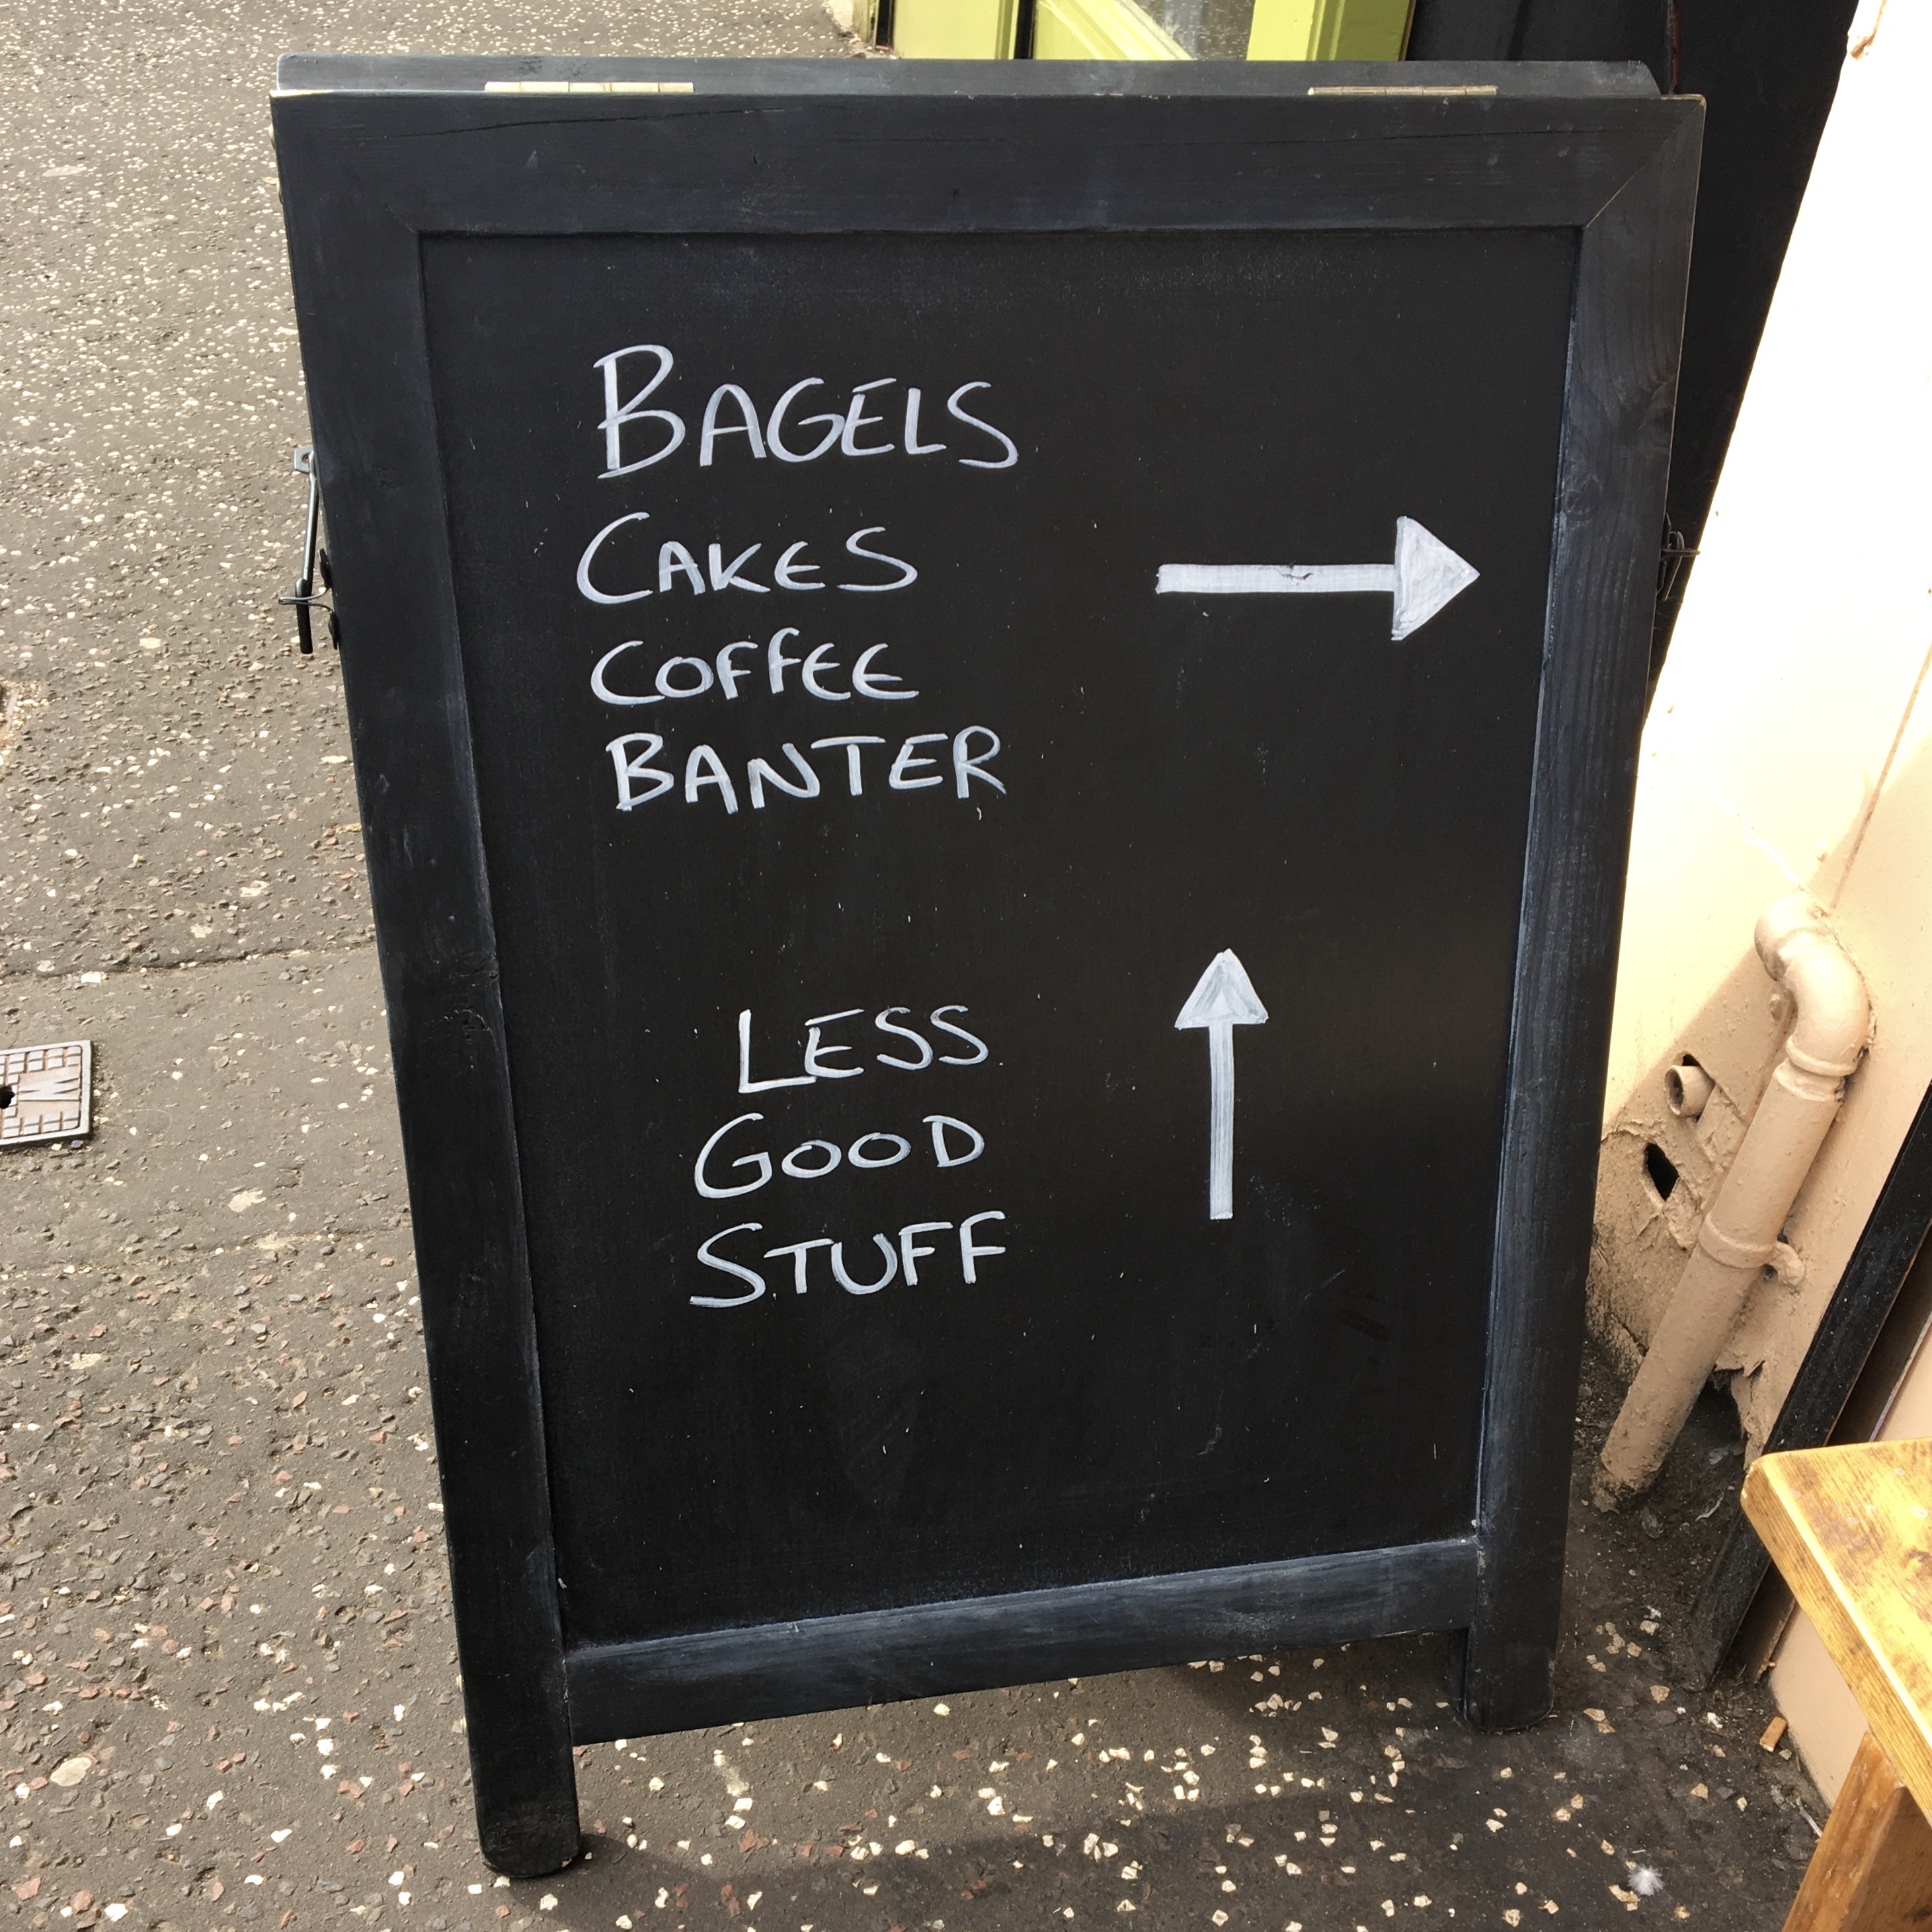 BAGELS
CAKES
COFFEE
BANTER
LESS
GOOD
STUFF